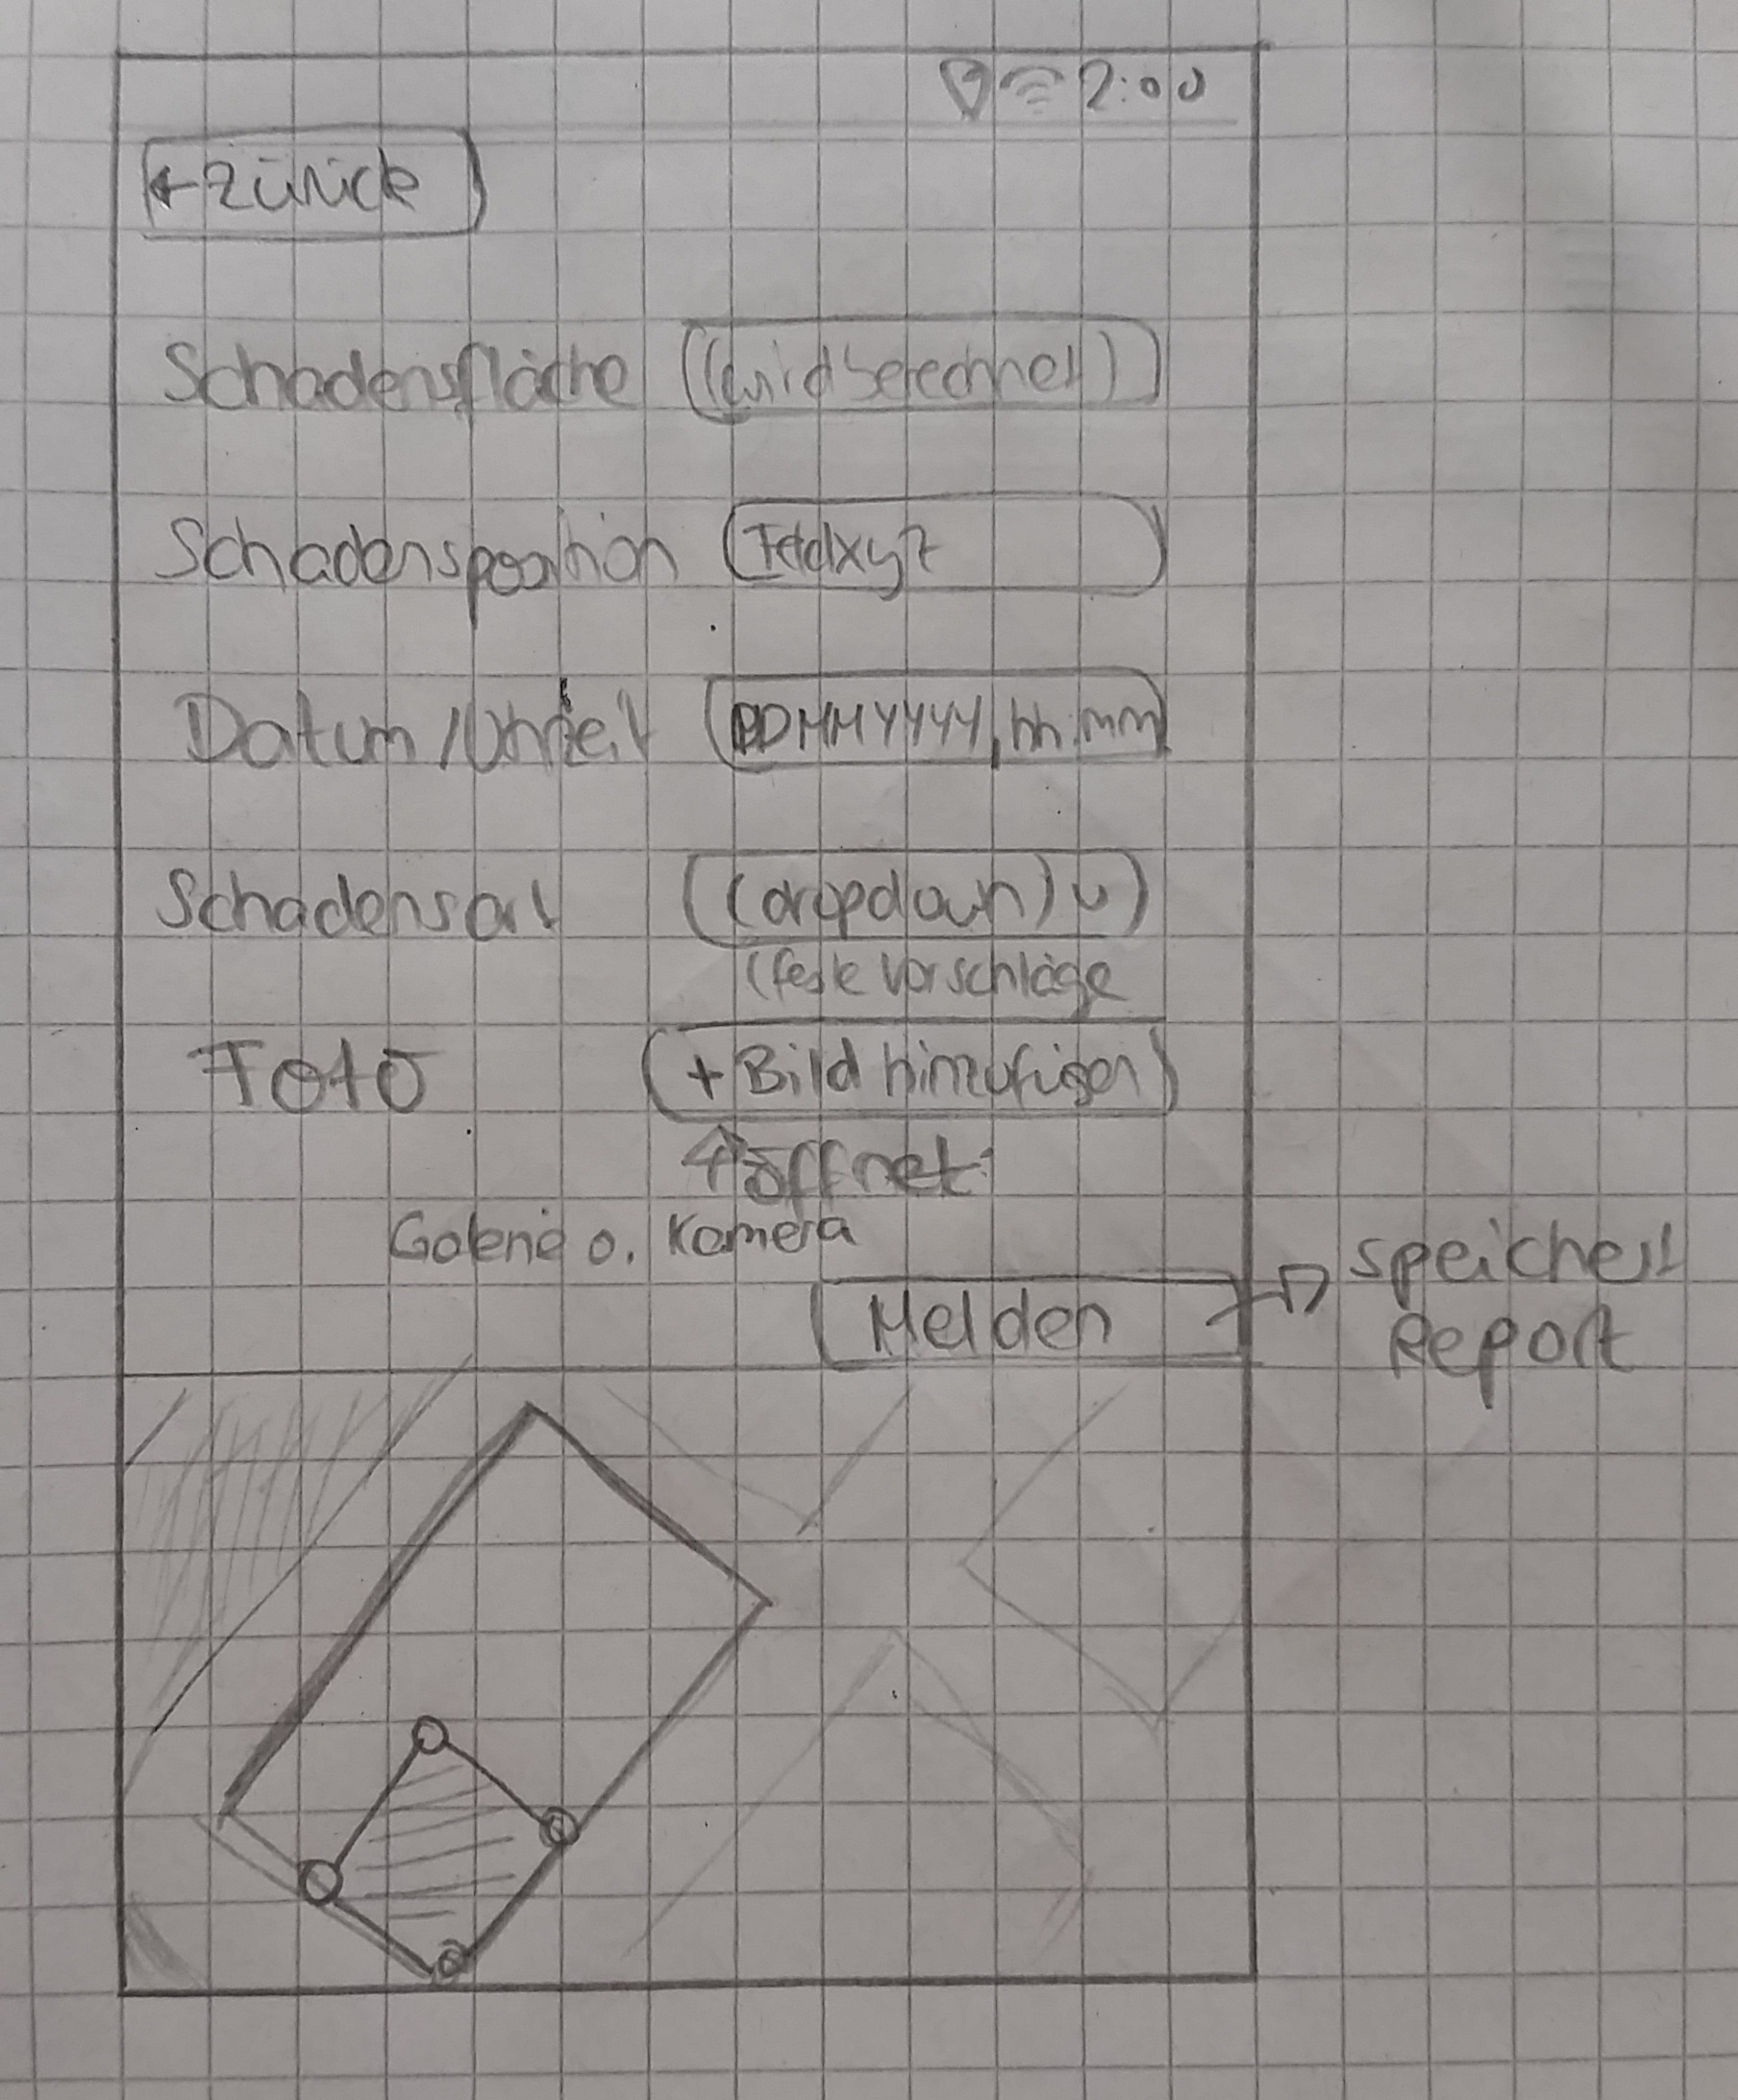 2:00
← Zürück
Schadensfläche (wird berechnet)
Schadensposition Feldxyz
Datum/Uhrzeit DDMMYYYY, hh:mm
Schadensart (dropdown) v
(feste Vorschläge
Foto + Bild hinzufügen
öffnet:
Galerie o. Kamera
Melden → speichert
Report